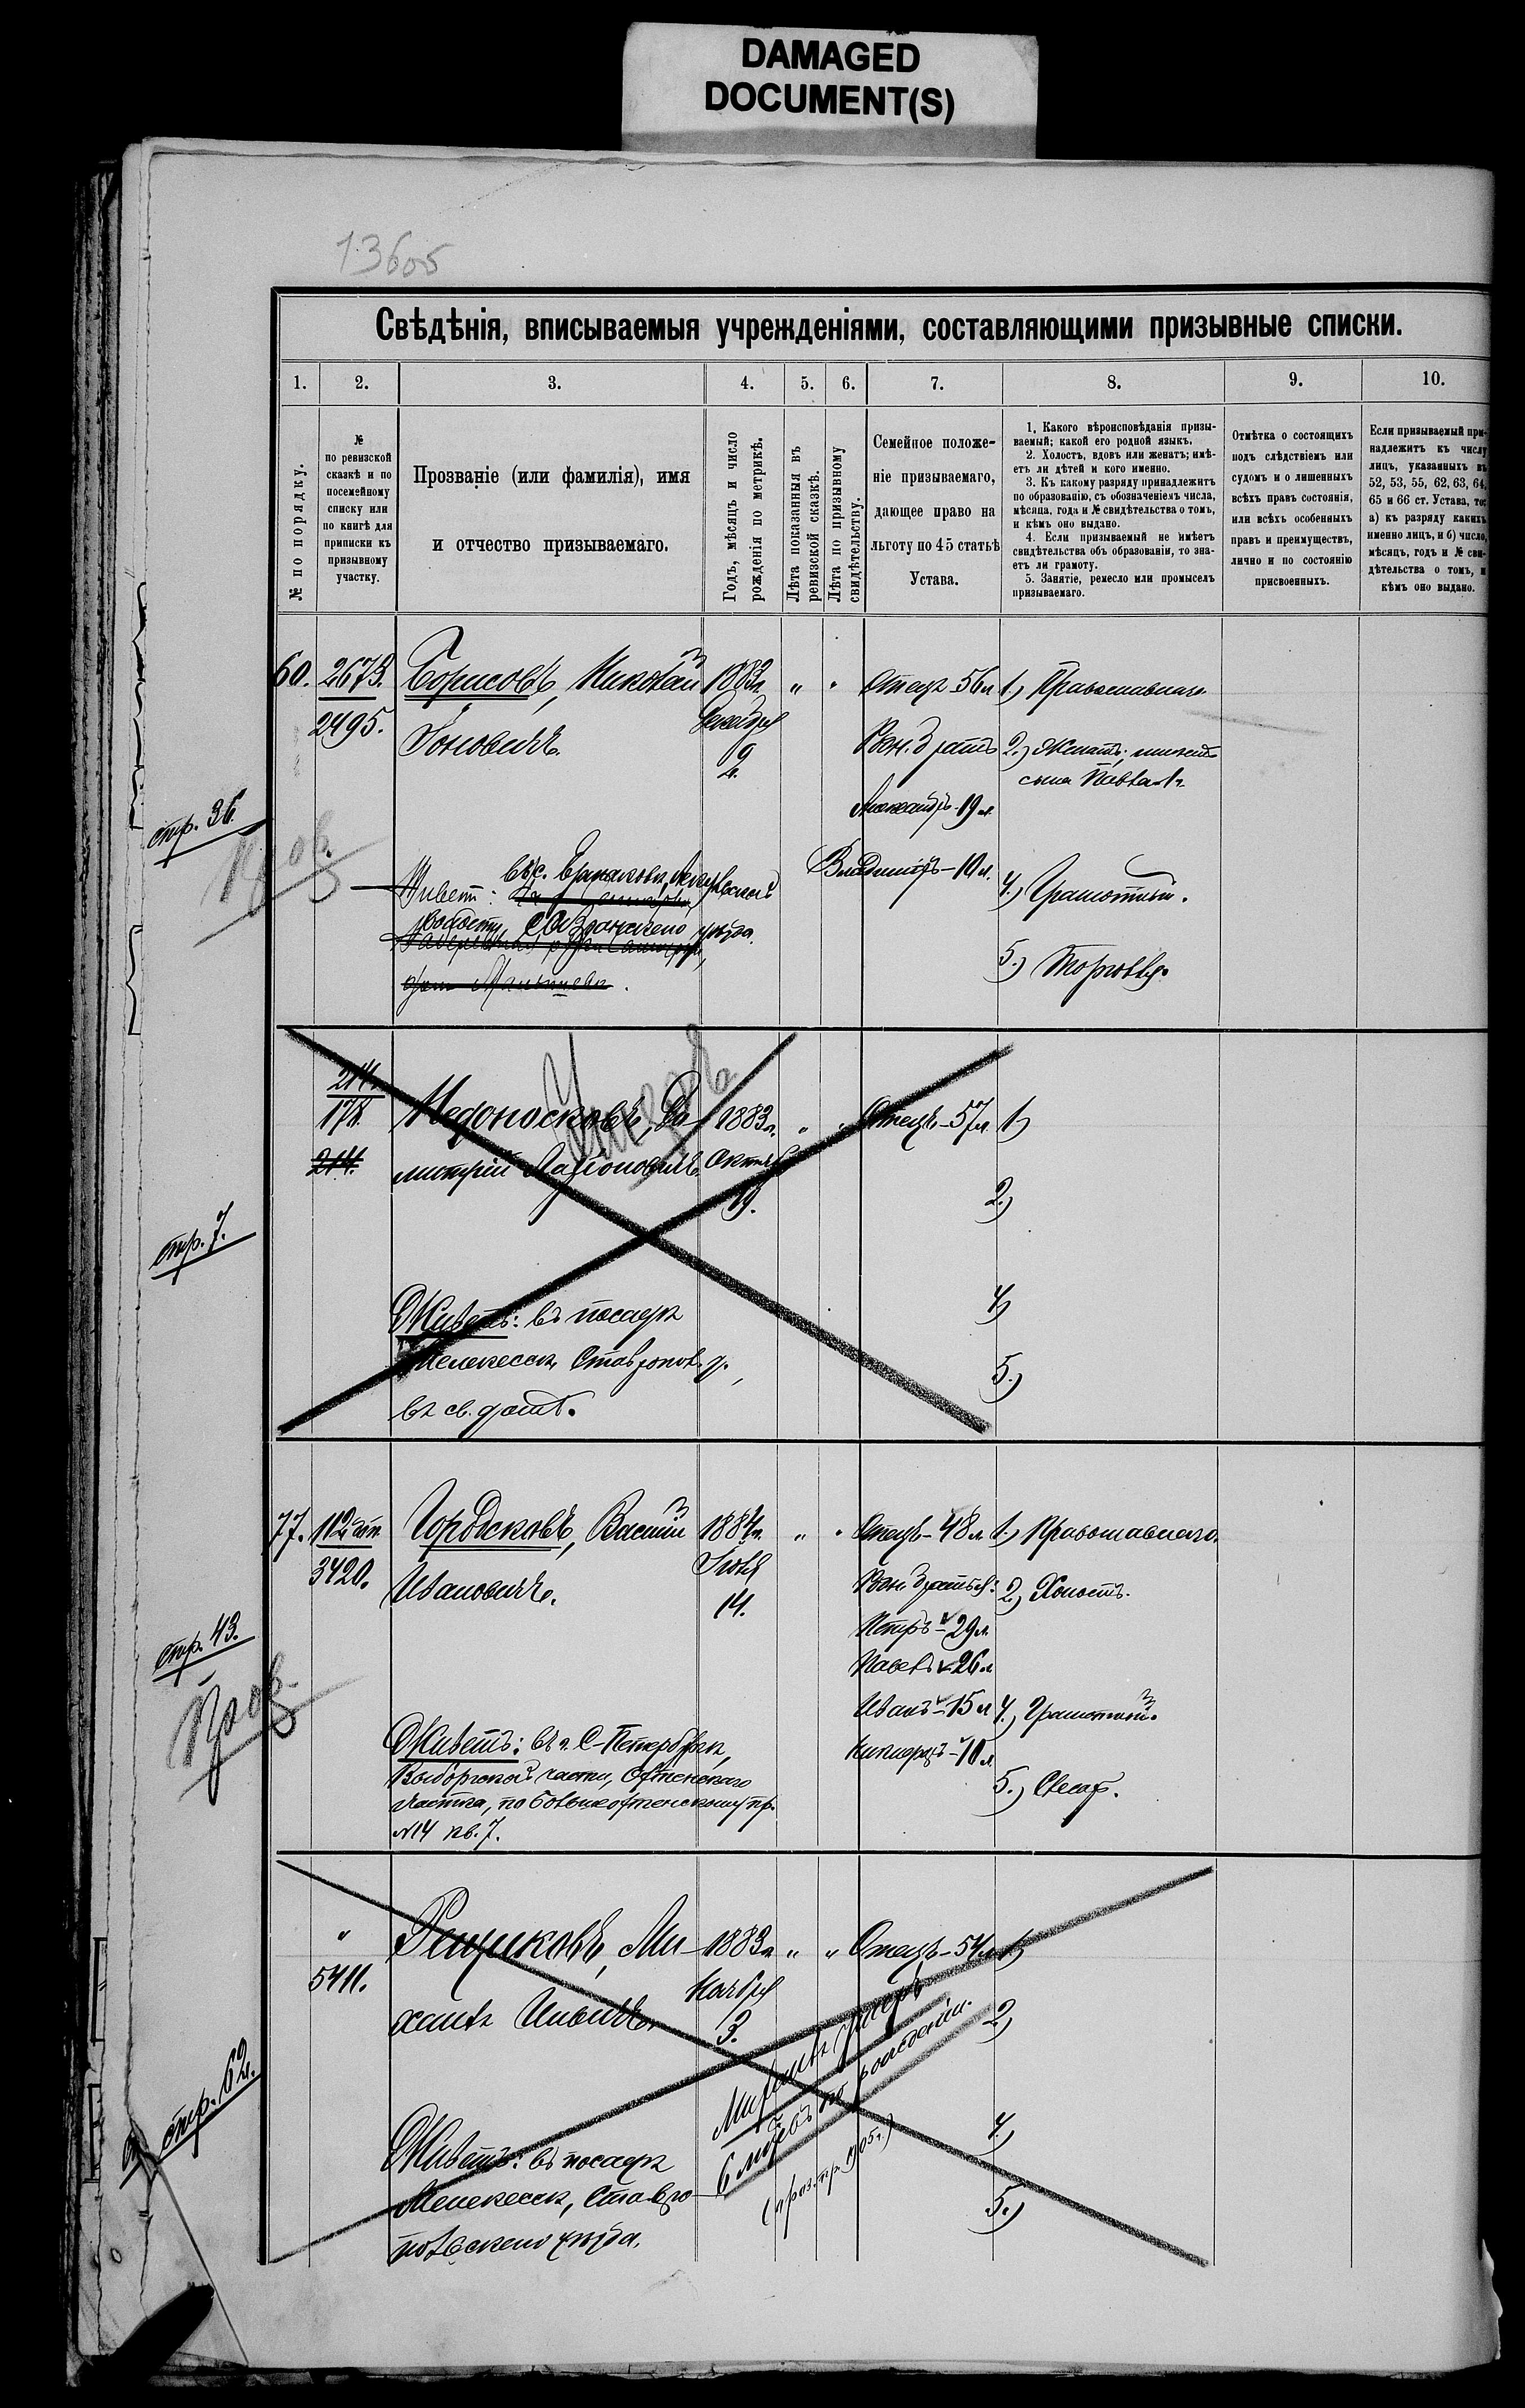 DAMAGED
DOCUMENT(S)
13605
Свѣдѣнія, вписываемыя учрежденіями, составляющими призывные списки.
1. 2. 3. 4. 5. 6. 7. 8. 9. 10.
№ по порядку.
№
по ревизской
сказкѣ и по
посемейному
списку или
по книгѣ для
приписки къ
призывному
участку.
Прозваніе (или фамилія), имя
и отчество призываемаго.
Годъ, мѣсяцъ и число
рожденія по метрикѣ.
Лѣта показанныя въ
ревизской сказкѣ.
Лѣта по призывному
свидѣтельству.
Семейное положе-
ніе призываемаго,
дающее право на
льготу по 45 статьѣ
Устава.
1. Какого вѣроисповѣданія призы-
ваемый; какой его родной языкъ.
2. Холостъ, вдовъ или женатъ; имѣ-
етъ ли дѣтей и кого именно.
3. Къ какому разряду принадлежитъ
по образованію, съ обозначеніемъ числа,
мѣсяца, года и № свидѣтельства о томъ,
и кѣмъ оно выдано.
4. Если призываемый не имѣетъ
свидѣтельства объ образованіи, то зна-
етъ ли грамоту.
5. Занятіе, ремесло или промыселъ
призываемаго.
Отмѣтка о состоящихъ
подъ слѣдствіемъ или
судомъ и о лишенныхъ
всѣхъ правъ состоянія,
или всѣхъ особенныхъ
правъ и преимуществъ,
лично и по состоянію
присвоенныхъ.
Если призываемый при-
надлежитъ къ числу
лицъ, указанныхъ въ
52, 53, 55, 62, 63, 64,
65 и 66 ст. Устава, то:
а) къ разряду какихъ
именно лицъ, и б) число,
мѣсяцъ, годъ и № сви-
дѣтельства о томъ, и
кѣмъ оно выдано.
60. 2673. Борисовъ, Николай 1883г. " " Отецъ 56л 1.) Православнаго
2495. Іоновичъ. Декабря 2. Род. братъ 2.) Женатъ; имѣетъ
сына Павла 1г.
Александръ 19 л.
стр. 36.
Владиміръ 10 л.
Живетъ: въ с.
волости
4.) Грамотный.
5.) Торговля.
214.
178. Медоносковъ, Ди- 1883г. " " Отецъ 57л 1)
214. митрій Ларіоновичъ Октября 19. 2.)
Умеръ
стр. 7.
Живетъ: въ посадѣ 4)
Мелекессѣ, Ставропол. у., 5.)
въ св. домѣ.
77. 112 доп. Гордѣсковъ, Василій 1884г. " " Отецъ 48л 1.) Православнаго.
3420. Ивановичъ. Іюня 14. Род. братья: 2.) Холостъ.
Петръ 29 л.
стр. 43.
Павелъ 26 л
Пров.
Иванъ 15 л 4.) Грамотный.
Никифоръ 10 л.
Живетъ: въ г. С-Петербургѣ,
Выборгской части, Охтенскаго 5.) Слесар.
участка, по Большеохтенскому пр.
№14 кв. 7.
" Рещиковъ, Ми- 1883г " " Отецъ 54л 1)
5411. хаилъ Ильичъ. Ноября 3. 2)
Михаилъ умеръ
6 мѣс. по рожденіи.
стр. 62.
Живетъ: въ посадѣ 4)
Мелекессѣ, Ставро- 5.)
польскаго уѣзда.